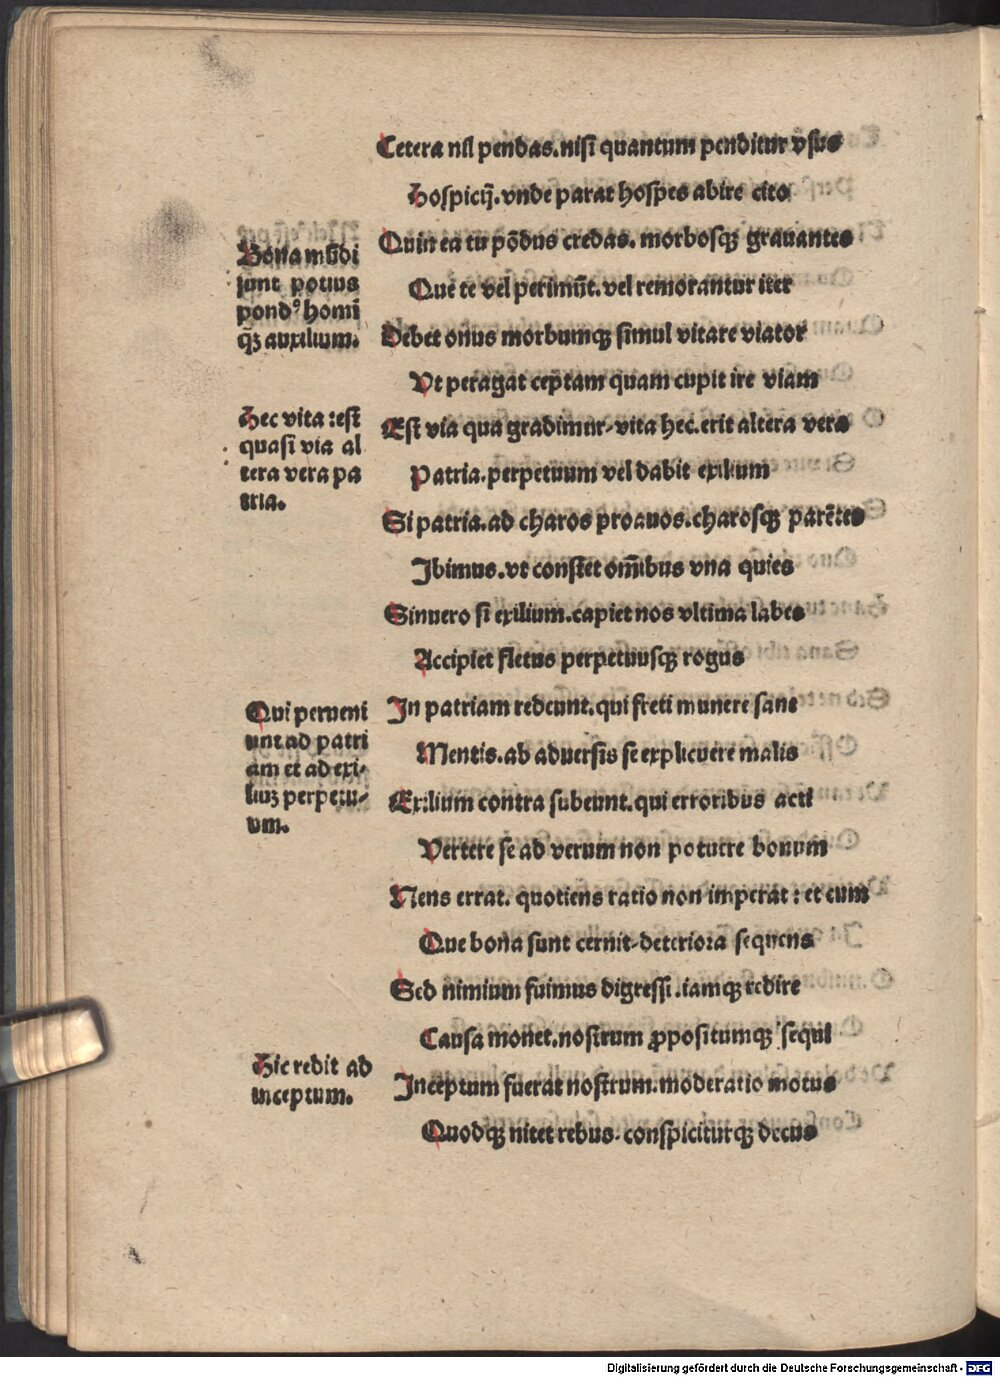 Cetera nil pendas. nisi quantum penditur vsus
Hospicij. vnde parat hospes abire cito
Quin ea tu põdus credas. morbosqꝫ grauantes
Que te vel perimũt. vel remorantur iter
Debet onus morbumqꝫ simul vitare viator
Vt peragat ceptam quam cupit ire viam
Est via qua gradimur-vita hec. erit altera vera
Patria. perpetuum vel dabit exilium
Si patria. ad charos proauos. charosqꝫ parẽtes
Ibimus. vt constet om̃ibus vna quies
Sinuero si exilium. capiet nos vltima labes
Accipiet fletus perpetuusqꝫ rogus
In patriam redeunt. qui freti munere sane
Mentis. ab aduersis se explicuere malis
Exilium contra subeunt. qui erroribus acti
Vertere se ad verum non potuere bonum
Mens errat. quotiens ratio non imperat : et cum
Que bona sunt cernit-deteriora sequens
Sed nimium fuimus digressi. iamqꝫ redire
Causa monet. nostrum ꝓpositumqꝫ sequi
Inceptum fuerat nostrum. moderatio motus
Quodqꝫ nitet rebus. conspiciturqꝫ decus
Bona mũdi
sunt potius
pondꝰ homi
q̃ꝫ auxilium.
Hec vita : est
quasi via al
tera vera pa
tria.
Qui perueni
unt ad patri
am et ad exi-
liuꝫ perpetu-
um.
Hic redit ad
inceptum.
Digitalisierung gefördert durch die Deutsche Forschungsgemeinschaft - DFG